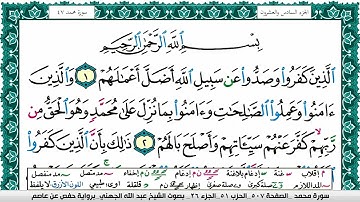 الجزء السادس والعشرون
سورة محمد ٤٧
بِسْمِ ٱللَّهِ ٱلرَّحْمَٰنِ ٱلرَّحِيمِ
ٱلَّذِينَ كَفَرُوا۟ وَصَدُّوا۟ عَن سَبِيلِ ٱللَّهِ أَضَلَّ أَعْمَٰلَهُمْ ١ وَٱلَّذِينَ
ءَامَنُوا۟ وَعَمِلُوا۟ ٱلصَّٰلِحَٰتِ وَءَامَنُوا۟ بِمَا نُزِّلَ عَلَىٰ مُحَمَّدٍ وَهُوَ ٱلْحَقُّ مِن
رَّبِّهِمْ كَفَّرَ عَنْهُمْ سَيِّـَٔاتِهِمْ وَأَصْلَحَ بَالَهُمْ ٢ ذَٰلِكَ بِأَنَّ ٱلَّذِينَ كَفَرُوا۟
سورة محمد - الصفحة ٥٠٧ - الحزب ٥١ - الجزء ٢٦ - بصوت الشيخ عبد الله الجهني برواية حفص عن عاصم